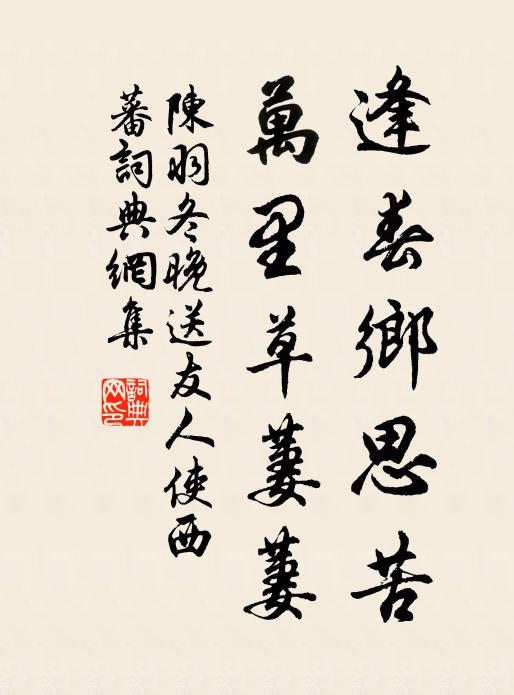 逢春鄉思苦
萬里草萋萋
陳羽冬晚送友人使西
蕃詞典網集
詞典
网印